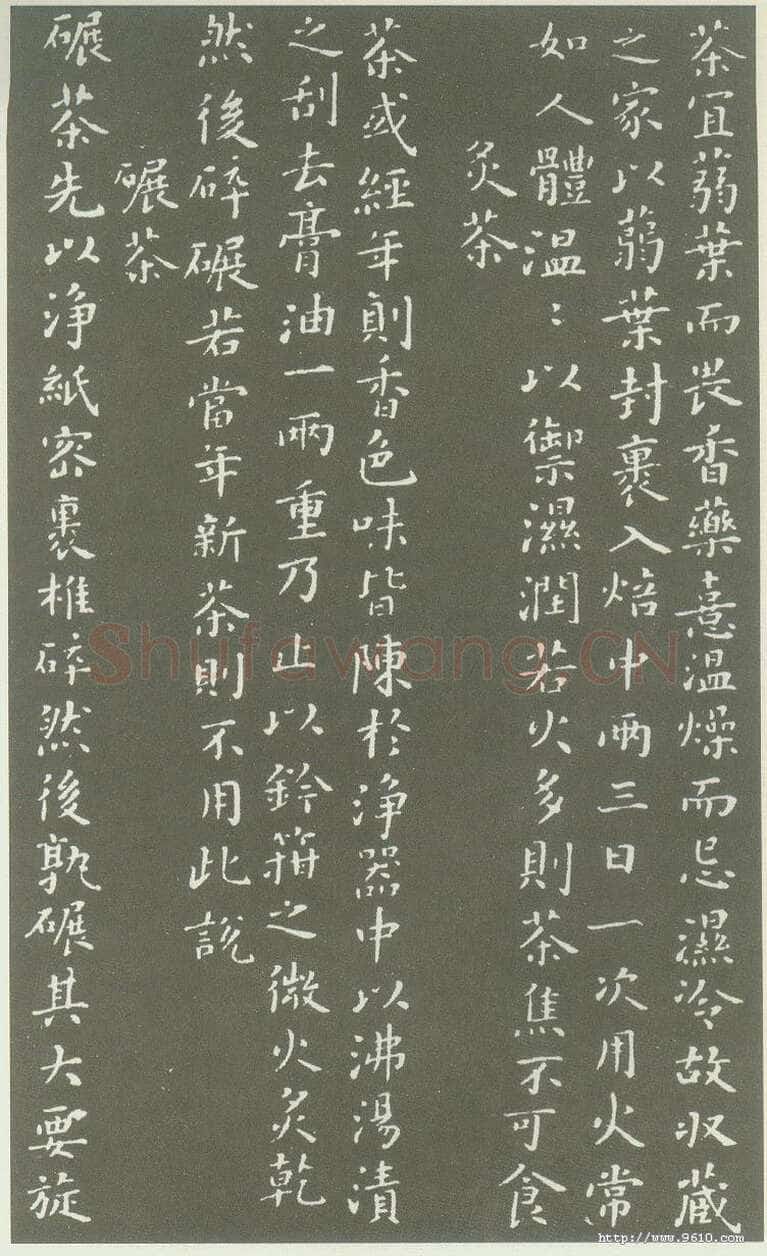 茶宜蒻葉而畏香藥憙温燥而忌濕冷故收藏
之家以蒻葉封裹入焙中兩三日一次用火常
如人體温〻以禦濕潤若火多則茶焦不可食
炙茶
茶或經年則香色味皆陳於浄器中以沸湯漬
之刮去膏油一兩重乃止以鈐箝之微火炙乾
然後碎碾若當年新茶則不用此説
碾茶
碾茶先以浄紙密裹椎碎然後孰碾其大要旋
Shufawang.CN
http://www.9610.com